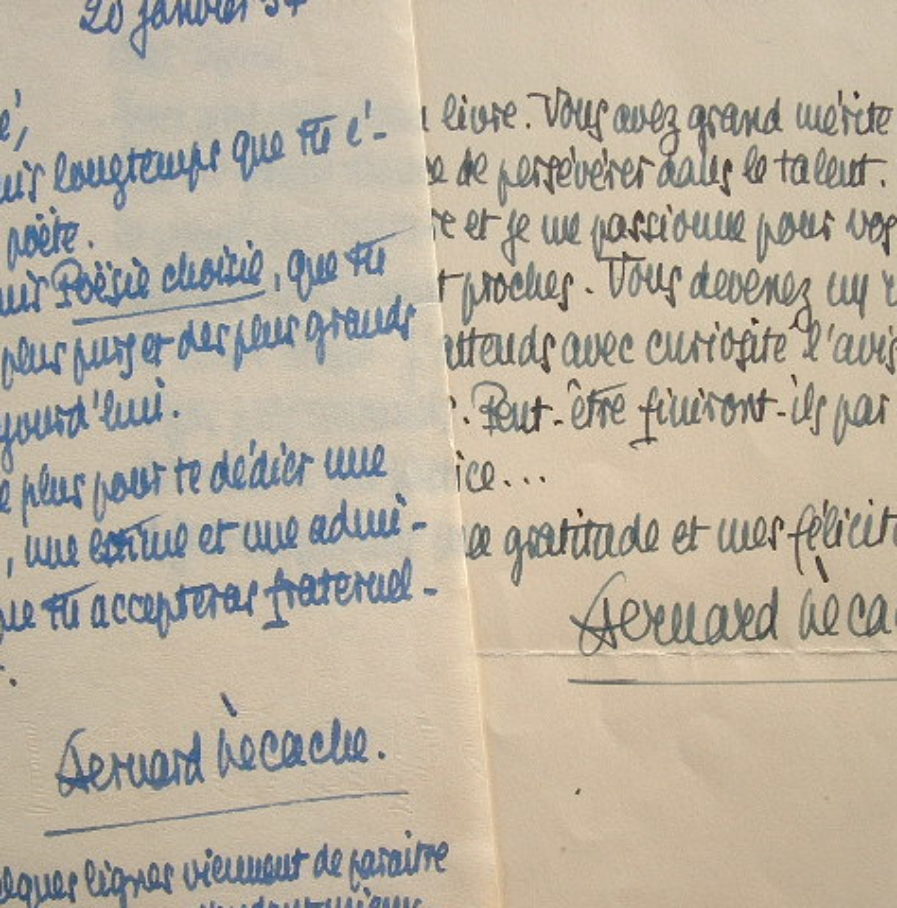 20 janvier 54
longtemps que tu é-
poète.
Poësie choisie, que tu
plus purs et des plus grands
jourd'hui.
plus pour te dédier une
, une estime et une admi-
que tu accepteras fraternel-
Bernard Lecache.
lignes viennent de paraître
livre. Vous avez grand mérite
de persévérer dans le talent.
et je me passionne pour vos
proches. Vous devenez un
attends avec curiosité l'avis
. Peut-être finiront-ils par
ice...
ma gratitude et mes félicit
Bernard Leca